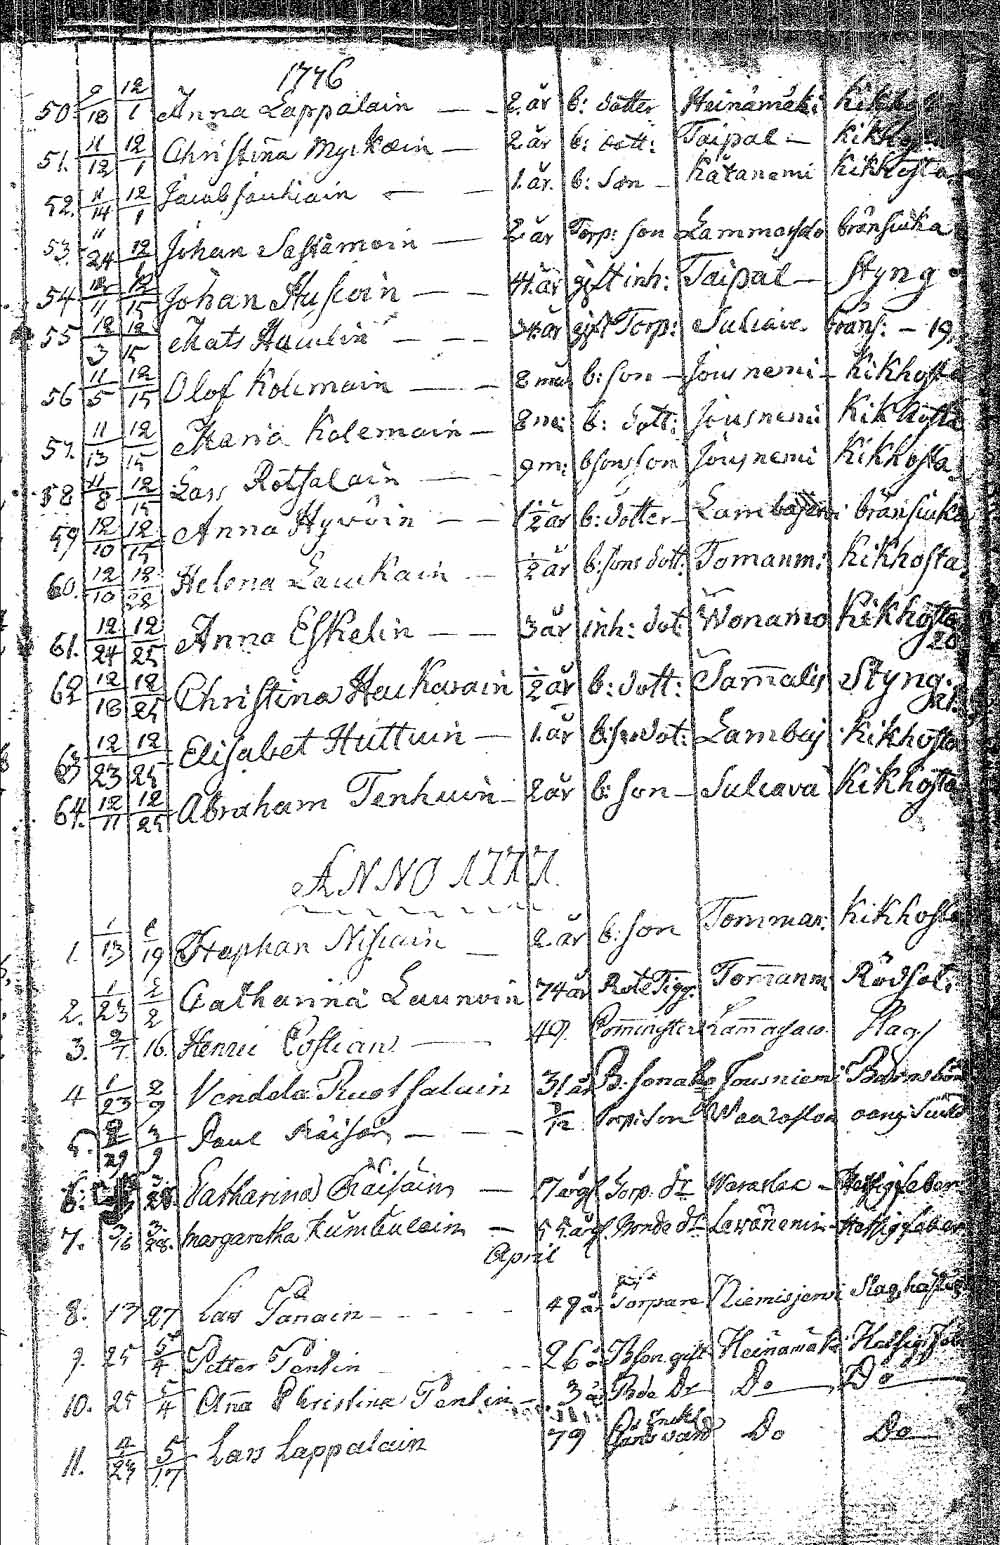 1776
50. 9/18 12/1 Anna Lappalain — — 2. år b: dotter Heinämäki Kikhosta
51. 11/12 12/1 Christina Myckäin — 2 år b: dott: Taipal — Kikhosta
52. 11/14 12/1 Jacob Jäuhiain — — 1. år. b: Son — Kåtanemi Kikhosta
53. 11/24 12/1 Johan Sastamoin — 2 år Torp: Son Lammasfalo bränsiuka
54 11/15 Johan Huskoin — — 44. år gift inh: Taipal — Styng
55 12/3 12/15 Mats Haulin — — — 34. år gift Torp: Sulcava bräns: — 19.
56 11/5 12/15 Olof Kolemain — — 8 må b: Son — Jousnemi — Kikhosta
57. 11/13 12/15 Maria Kolemain — 8 m: b: dott: Jousnemi Kikhosta
58 11/8 12/15 Lars Rotsalain — — 9 m: b Sons Son Jousnemi Kikhosta
59 12/10 12/15 Anna Hyvöin — — 1 1/2 år b: dotter — Lambasjärvi bränsiuka
60. 12/10 12/22 Helena Lauckain — 1/2 år b: sons dott: Tomanm: Kikhosta
61. 12/24 12/25 Anna Eskelin — — 3 år inh: dot Wonamo Kikhosta 20
62 12/18 12/25 Christina Hackarain 1/2 år b: dott: Sam̄alis Styng. 21.
63 12/23 12/25 Elisabet Huttuin — 1. år b: so dot: Lambaj Kikhosta
64. 12/11 12/25 Abraham Tenhuin — 2 år b: Son — Sulcava Kikhosta
ANNO 1777.
1. 1/13 1/19 Staphan Niskain — 2. år b: Son Tomman: Kikhosta
2. 1/23 2/2 Catharina Launoin 74 år Rote Tigg. Tom̄anm: Rödsot:
3. 2/7 16. Henric Costian — 49. Slag
4 1/23 2/9 Vendela Ruotsalain 31 år B: sona Jousniemi Barnsbörd
5. 2/29 3/9 Paul Räisän — — — 7/12 Torp: Son
6: Catharina Räisäin — Torp. Dr Hetsig feber
7. 3/16 3/28. Margaretha Kumbulain — 55 år Bonde Dr Levänemi — Hetsig feber
April
8. 13 27 Lars Tanain — — — 49 år Torpare Niemisjervi Slag hastigt
9. 25 5/4 Petter Penkin — — 26 å B Son gift Heinämäki Hetsig feb
10. 25 5/4 An̄a Christina Penkin — 3 å Bde Dr Do Do
11. 4/23 5/17 Lars Lappalain 79 Do Do